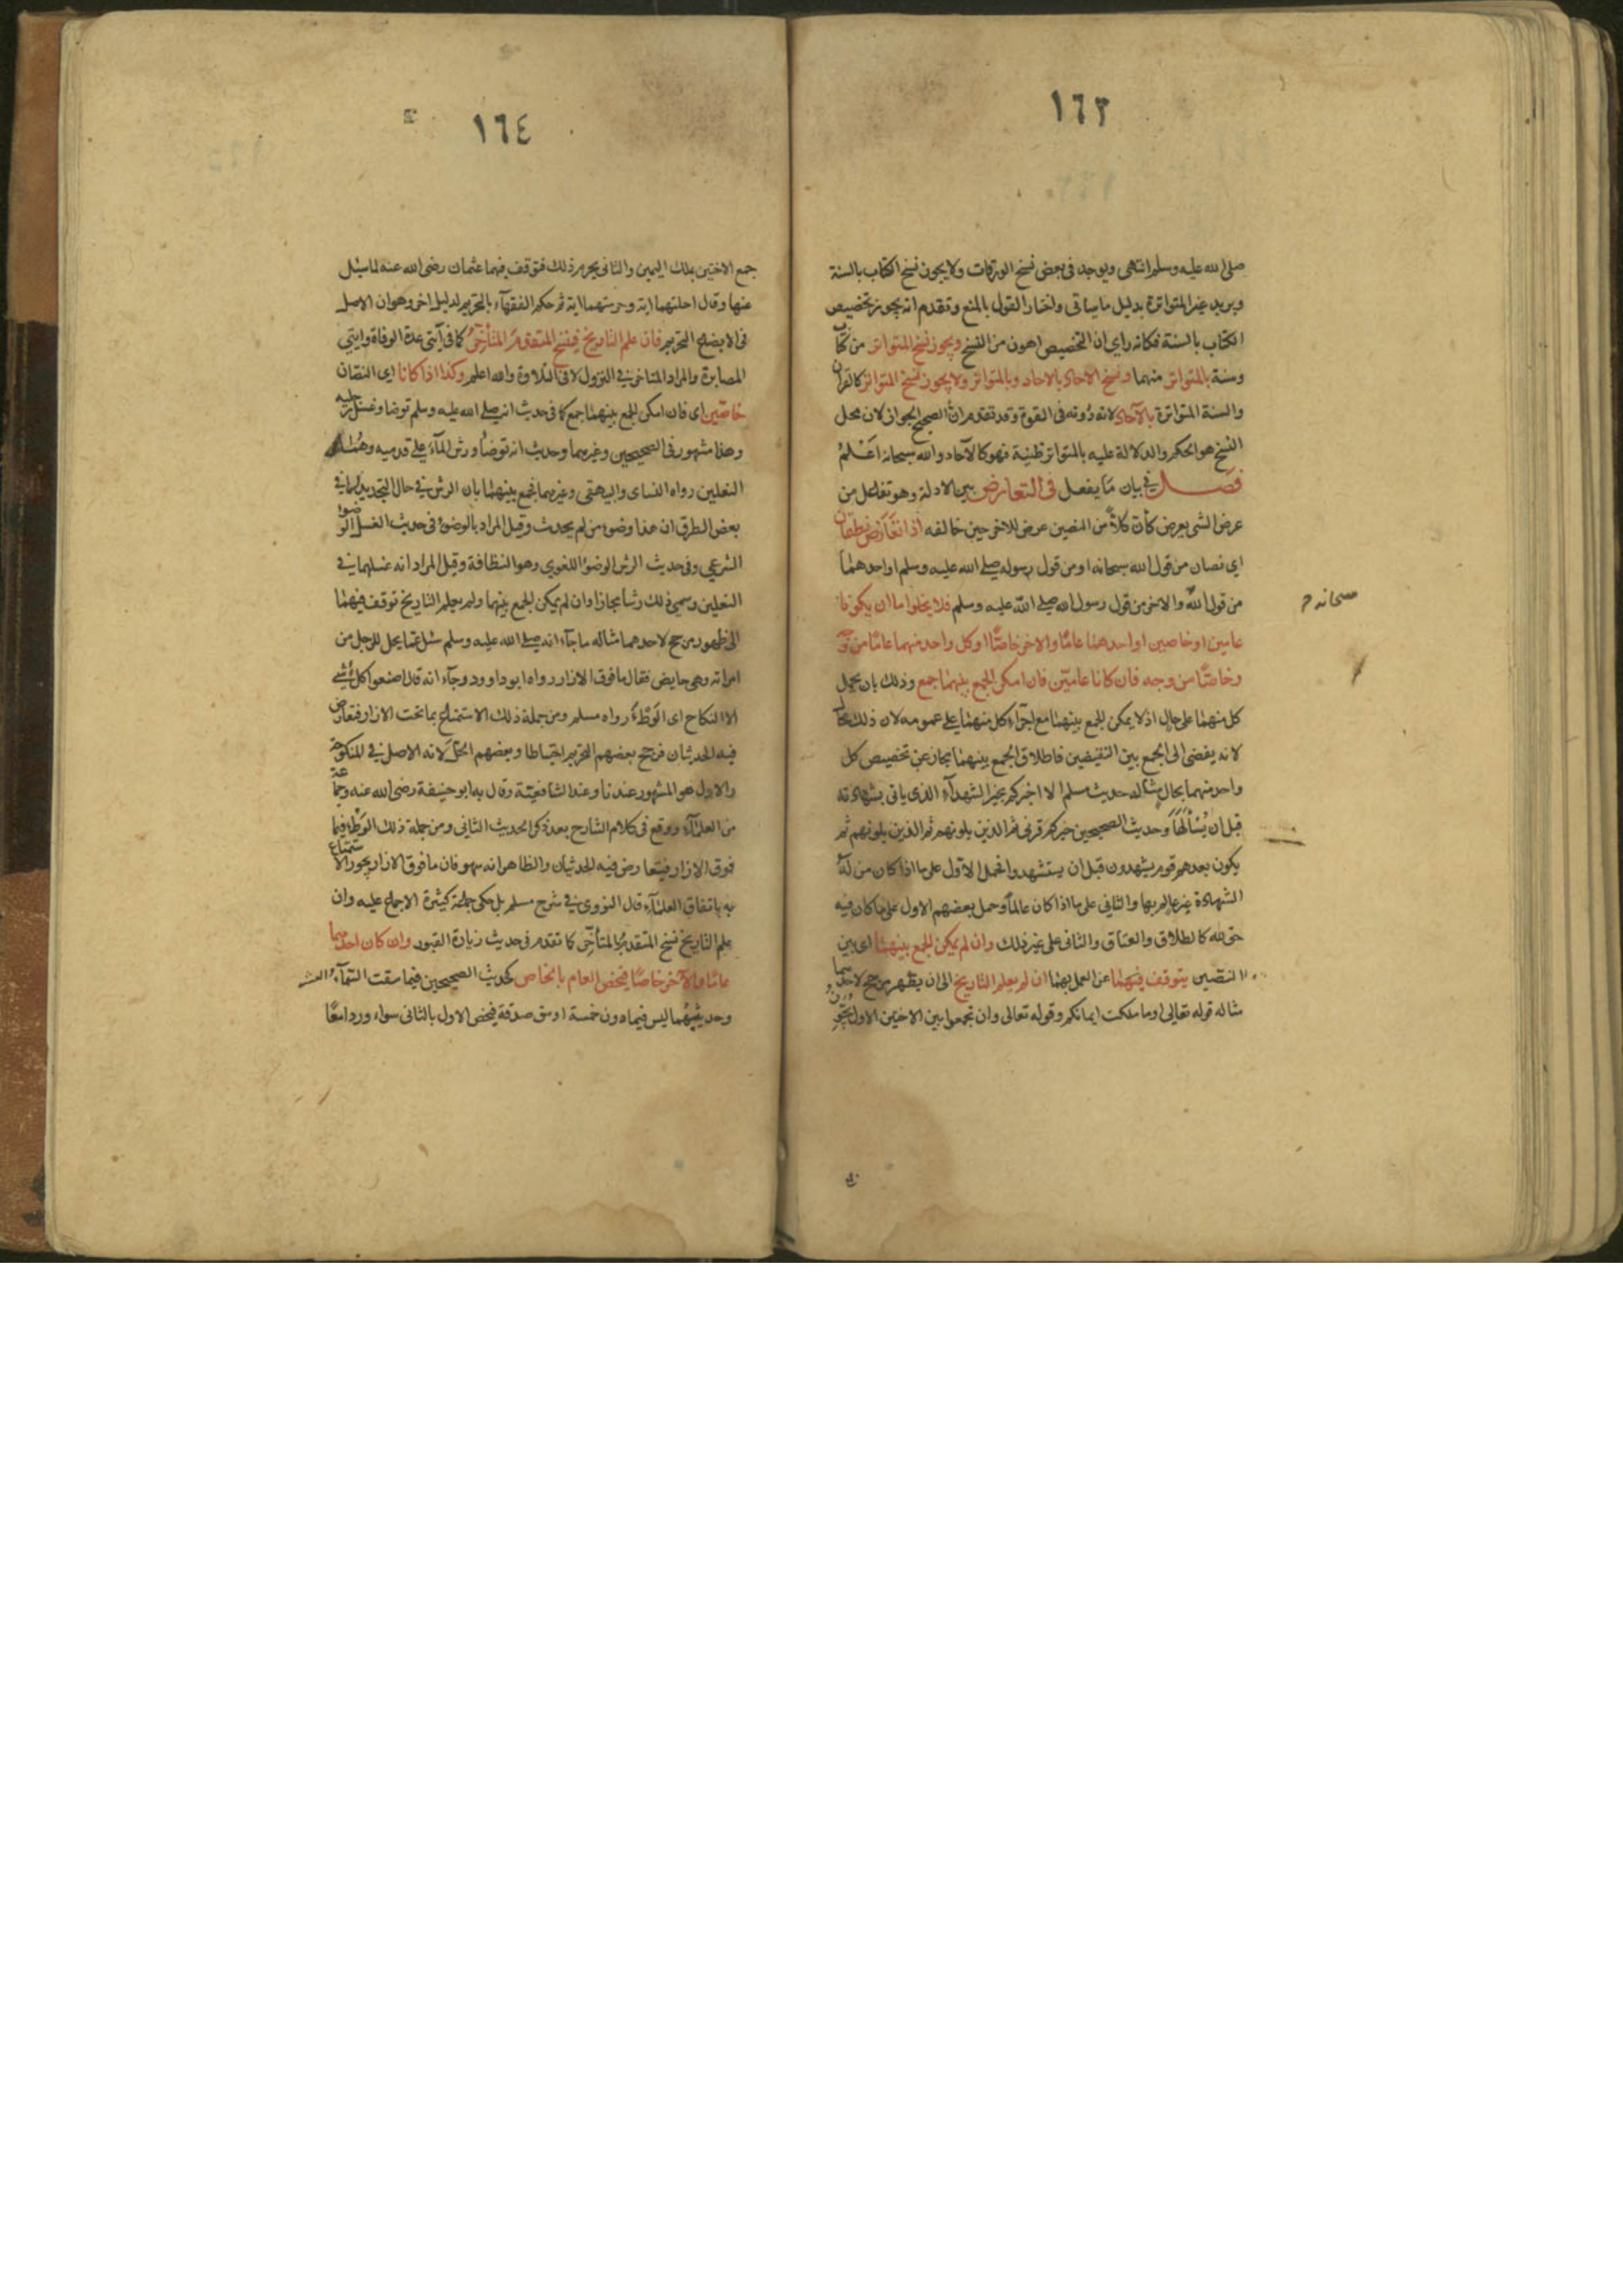 ١٦٣
صلى الله عليه وسلم انتهى ويوجد فى بعض نسخ الورقات ولا يجوز نسخ الكتاب بالسنة
ويريد غير المتواترة بدليل ما سياتى واختار القول بالمنع وتقدم انه يجوز تخصيص
الكتاب بالسنة فكانه راى ان التخصيص اهون من النسخ ويجوز نسخ المتواتر من كتاب
وسنة بالمتواتر منهما ونسخ الآحاد بالاحاد وبالمتواتر ولا يجوز نسخ المتواتر كالقرآن
والسنة المتواترة بالآحاد لانه دونه فى القوة وقد تقدم ان الصحيح الجواز لان محل
النسخ هو الحكم والدلالة عليه بالمتواتر ظنية فهو كالآحاد والله سبحانه اعلم
فصل في بيان ما يفعل فى التعارض بين الادلة وهو تفاعل من
عرض الشى يعرض كأن كلاً من النصين عرض للاخر حين خالفه اذا تعارض نطقان
اى نصان من قول الله سبحانه او من قول رسوله صلى الله عليه وسلم او احدهما
من قول الله والاخر من قول رسول الله صلى الله عليه وسلم فلا يخلوا اما ان يكونا
سبحانه
عامين او خاصين او احدهما عامًا والاخر خاصًا او كل واحد منهما عامًا من وجه
وخاصًا من وجه فان كانا عامين فان امكن الجمع بينهما جمع وذلك بان يحمل
كل منهما على حال اذ لا يمكن الجمع بينهما مع اجراء كل منهما على عمومه لان ذلك محال
لانه يفضى الى الجمع بين النقيضين فاطلاق الجمع بينهما مجاز عن تخصيص كل
واحد منهما بحال مثاله حديث مسلم الا اخبركم بخير الشهدآء الذى ياتى بشهادته
قبل ان يُسْألَهَا وحديث الصحيحين خيركم قرنى ثم الذين يلونهم ثم الذين يلونهم ثم
يكون بعدهم قوم يشهدون قبل ان يستشهدوا فحمل الاول على ما اذا كان من له
الشهادة غير عالم بها والثانى على ما اذا كان عالماً وحمل بعضهم الاول على ما كان فيه
حق لله كالطلاق والعتاق والثانى على غير ذلك وان لم يمكن الجمع بينهما اى بين
النصين يتوقف فيهما عن العمل بهما ان لم يعلم التاريخ الى ان يظهر مرجح لاحدهما
مثاله قوله تعالى او ما ملكت ايمانكم وقوله تعالى وان تجمعوا بين الاختين الاول يجوز
١٦٤
جمع الاختين بملك اليمين والثانى يحرم ذلك فتوقف فيهما عثمان رضى الله عنه لما سئل
عنها وقال احلتهما اية وحرمتهما اية ثم حكم الفقهآء بالتحريم لدليل اخر وهو ان الاصل
فى الابضاع التحريم فان علم التاريخ فينسخ المتقدم المتأخر كما فى آيتى عدة الوفاة وايتى
المصابرة والمراد المتاخر في النزول لا فى التلاوة والله اعلم وكذا اذا كانا اى النصان
خاصين اى فان امكن الجمع بينهما جمع كما فى حديث انه صلى الله عليه وسلم توضا وغسل رجليه
وهذا مشهور فى الصحيحين وغيرهما وحديث انه توضأ ورش المآء على قدميه وهما في
النعلين رواه النساى والبيهقى وغيرهما فجمع بينهما بان الرش في حال التجديد لما في
بعض الطرق ان هذا وضوء من لم يحدث وقيل المراد بالوضوء فى حديث الغسل الوضوء
الشرعي وفى حديث الرش الوضؤ اللغوى وهو النظافة وقيل المراد انه غسلهما في
النعلين وسمي ذلك رشا مجازا وان لم يمكن الجمع بينهما ولم يعلم التاريخ توقف فيهما
الى ظهور مرجح لاحدهما مثاله ما جآء انه صلى الله عليه وسلم سئل عما يحل للرجل من
امراته وهى حايض فقال ما فوق الازار رواه ابو داوود وجآء انه قال اصنعوا كل شيء
الا النكاح اى الوطْءَ رواه مسلم ومن جملة ذلك الاستمتاع بما تحت الازار فتعارض
فيه الحديثان فرجح بعضهم التحريم احتياطا وبعضهم الحل لانه الاصل في المنكوحة
والاول هو المشهور عندنا وعند الشافعية وقال به ابو حنيفة رضى الله عنه وجماعة
من العلمآء ووقع فى كلام الشارح بعد ذكر الحديث الثانى ومن جملة ذلك الوطْء فيما
فوق الازار فيتعارض فيه الحديثان والظاهر انه سهو فان ما فوق الازار يجوز الاستمتاع
به باتفاق العلمآء قال النووى في شرح مسلم بل حكى جماعة كثيرة الاجماع عليه وان
علم التاريخ نسخ المتقدم بالمتأخر كما تقدم فى حديث زيارة القبور وان كان احدهما
عامًا والآخر خاصًا فيخص العام بالخاص كحديث الصحيحين فيما سقت السمآء العشر
وحديثهما ليس فيما دون خمسة اوسق صدقة فيخص الاول بالثانى سواء وردا معًا